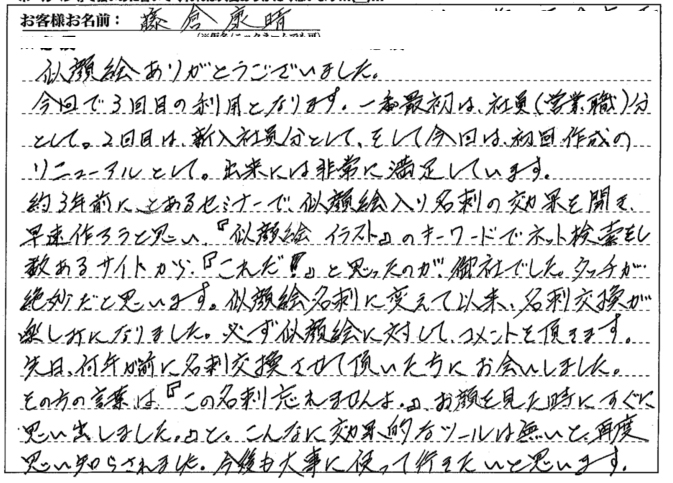 お客様お名前： 藤倉康晴
似顔絵ありがとうございました。
今回で3回目の利用となります。一番最初は、社員(営業職)分
として。2回目は、新入社員分として、そして今回は、初回作成の
リニューアルとして。出来には非常に満足しています。
約3年前に、とあるセミナーで、似顔絵入り名刺の効果を聞き、
早速作ろうと思い、『似顔絵 イラスト』のキーワードでネット検索をし
数あるサイトから、『これだ！』と思ったのが、御社でした。タッチが
絶妙だと思います。似顔絵名刺に変えて以来、名刺交換が
楽しみになりました。必ず似顔絵に対して、コメントを頂きます。
先日、何年か前に名刺交換させて頂いた方にお会いしました。
その方の言葉は『この名刺忘れませんよ。』、お顔を見た時にすぐに
思い出しました。』と。こんなに効果的なツールは無いと、再度
思い知らされました。今後も大事に使って行きたいと思います。